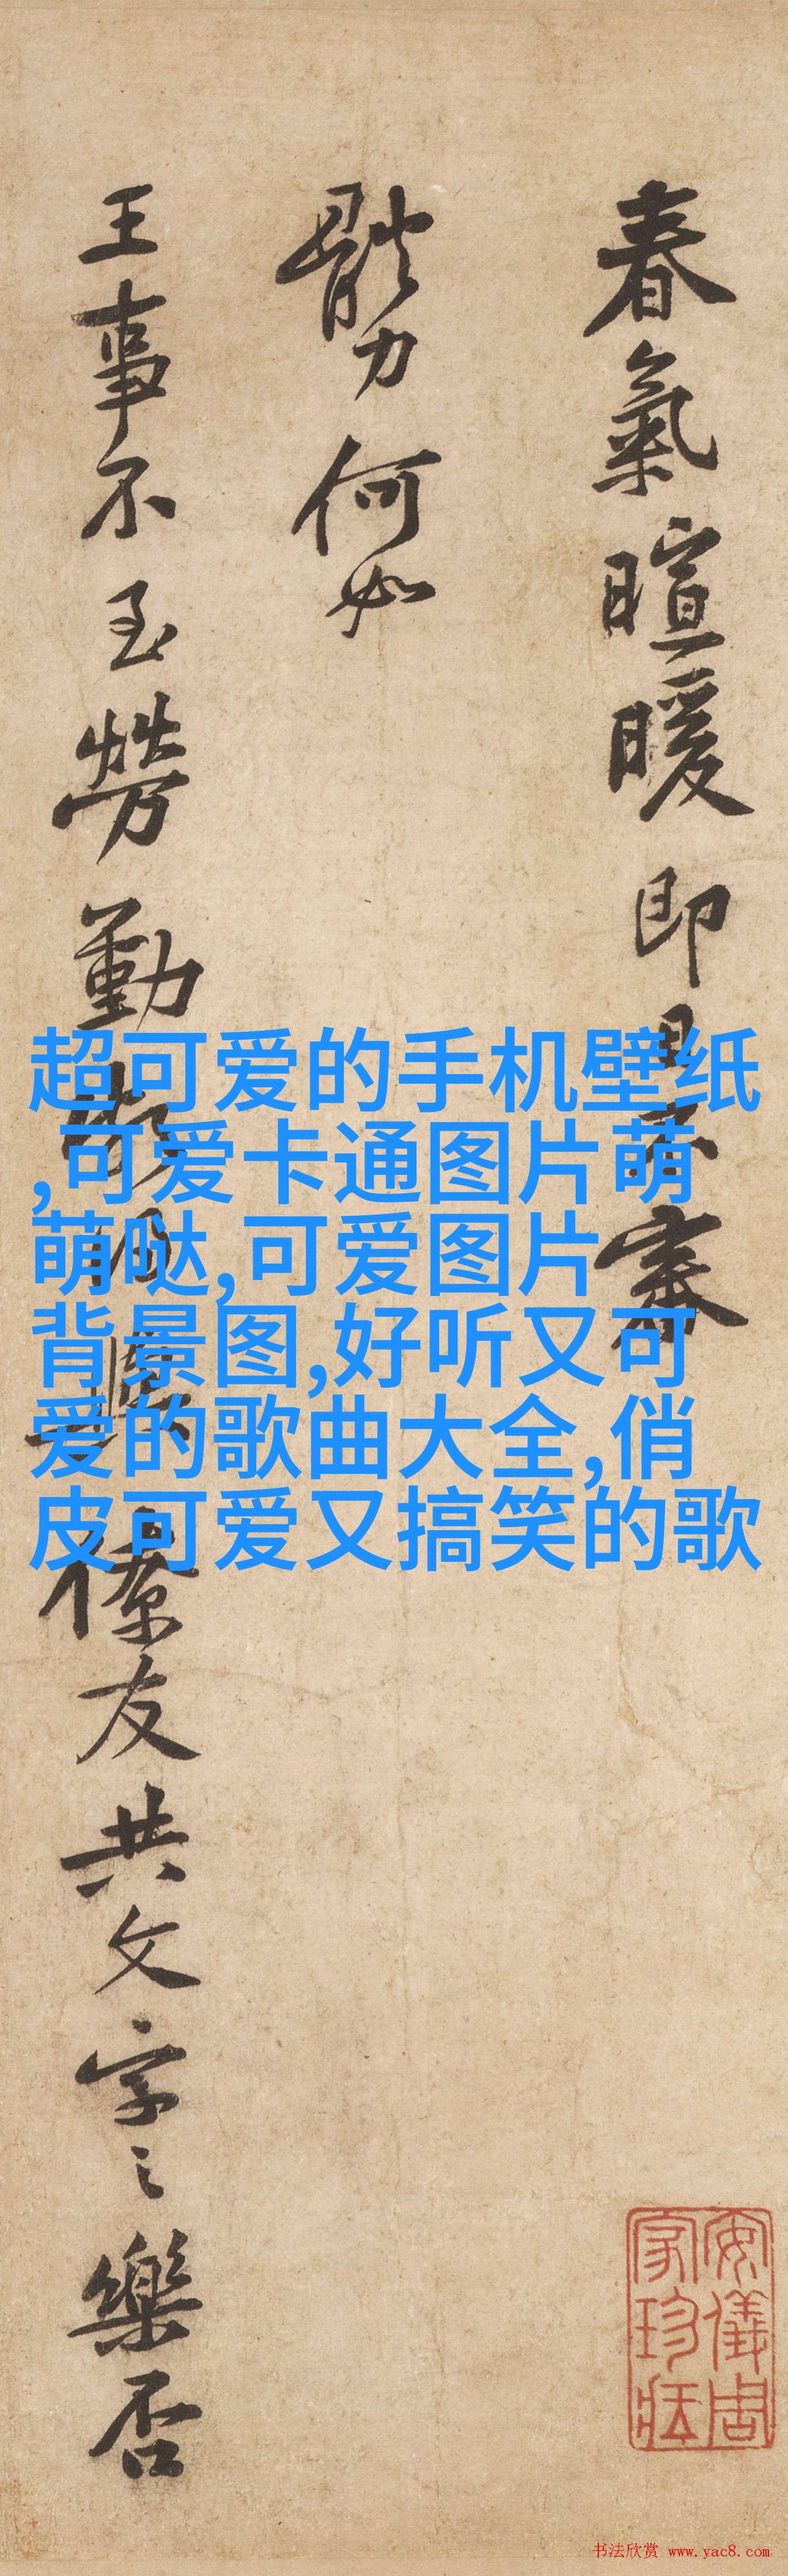 春氣暄暖即日不審
體力何如
王事不至勞勤僚友共文字之樂否
超可爱的手机壁纸
,可爱卡通图片萌
萌哒,可爱图片
背景图,好听又可
爱的歌曲大全,俏
皮可爱又搞笑的歌
安儀周
家珍藏
书法欣赏 www.yac8.com